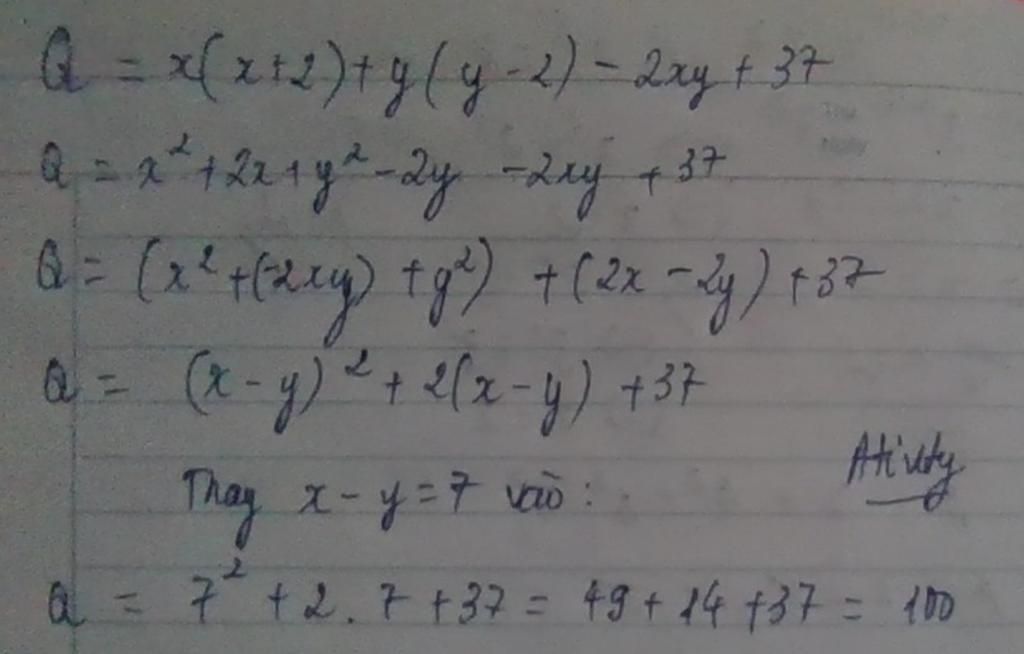 Q = x(x+2)+y(y-2)-2xy+37
Q = x²+2x+y²-2y-2xy+37
Q = (x²+(-2xy)+y²)+(2x-2y)+37
Q = (x-y)²+2(x-y)+37
Thay x-y=7 vào:
Q = 7²+2.7+37=49+14+37=100